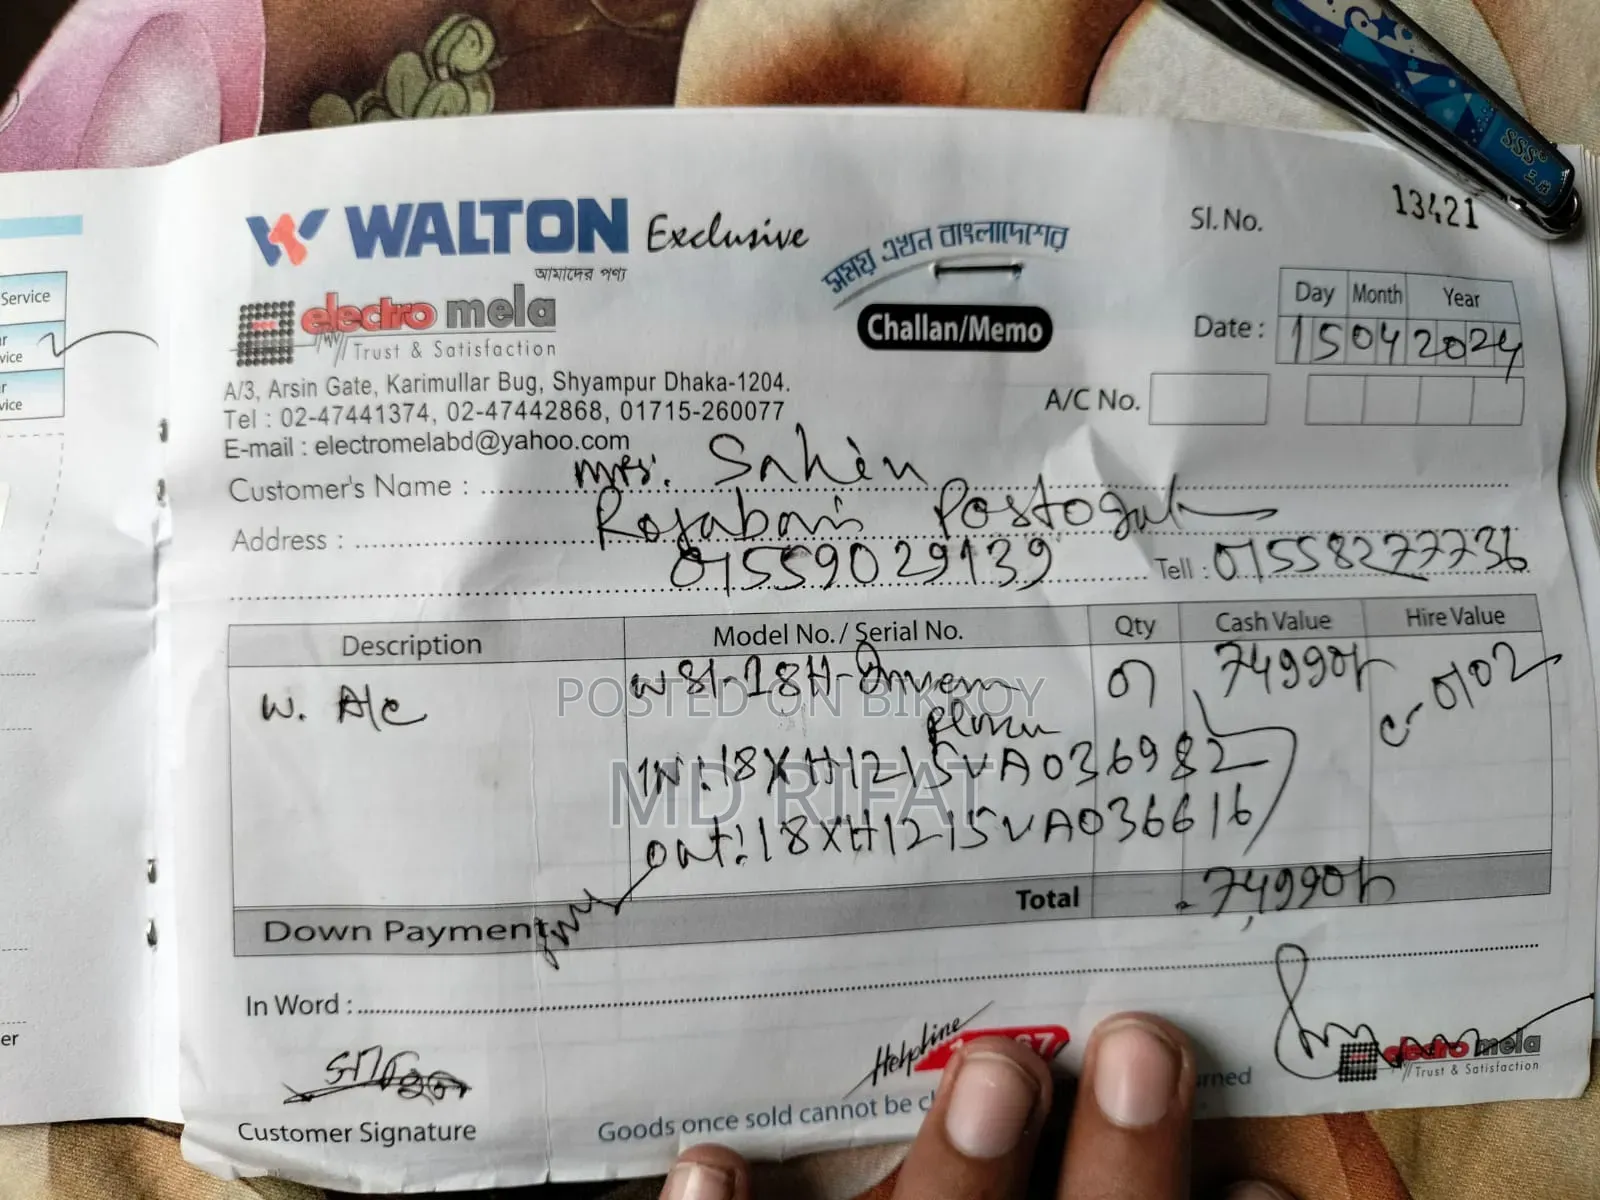 WALTON Exclusive
আমাদের পণ্য
সময় এখন বাংলাদেশের
Sl. No. 13421
electro mela
Trust & Satisfaction
Challan/Memo
Day Month Year
Date : 15 04 2024
A/C No.
A/3, Arsin Gate, Karimullar Bug, Shyampur Dhaka-1204.
Tel : 02-47441374, 02-47442868, 01715-260077
E-mail : electromelabd@yahoo.com
Customer's Name : Mrs. Sahin
Address : Postogula
01559029139 Tell : 01558277736
Description Model No. / Serial No. Qty Cash Value Hire Value
W. A/c WSI-18H- 01 74990/-
C-0102
IN: 18XH1215VA036982
out: 18XH1215VA036616
Total 74,990/-
Down Payment
In Word :
Helpline
Customer Signature
Goods once sold cannot be
electro mela
Trust & Satisfaction
Service
POSTED ON BIKROY
MD RIFAT
SSS